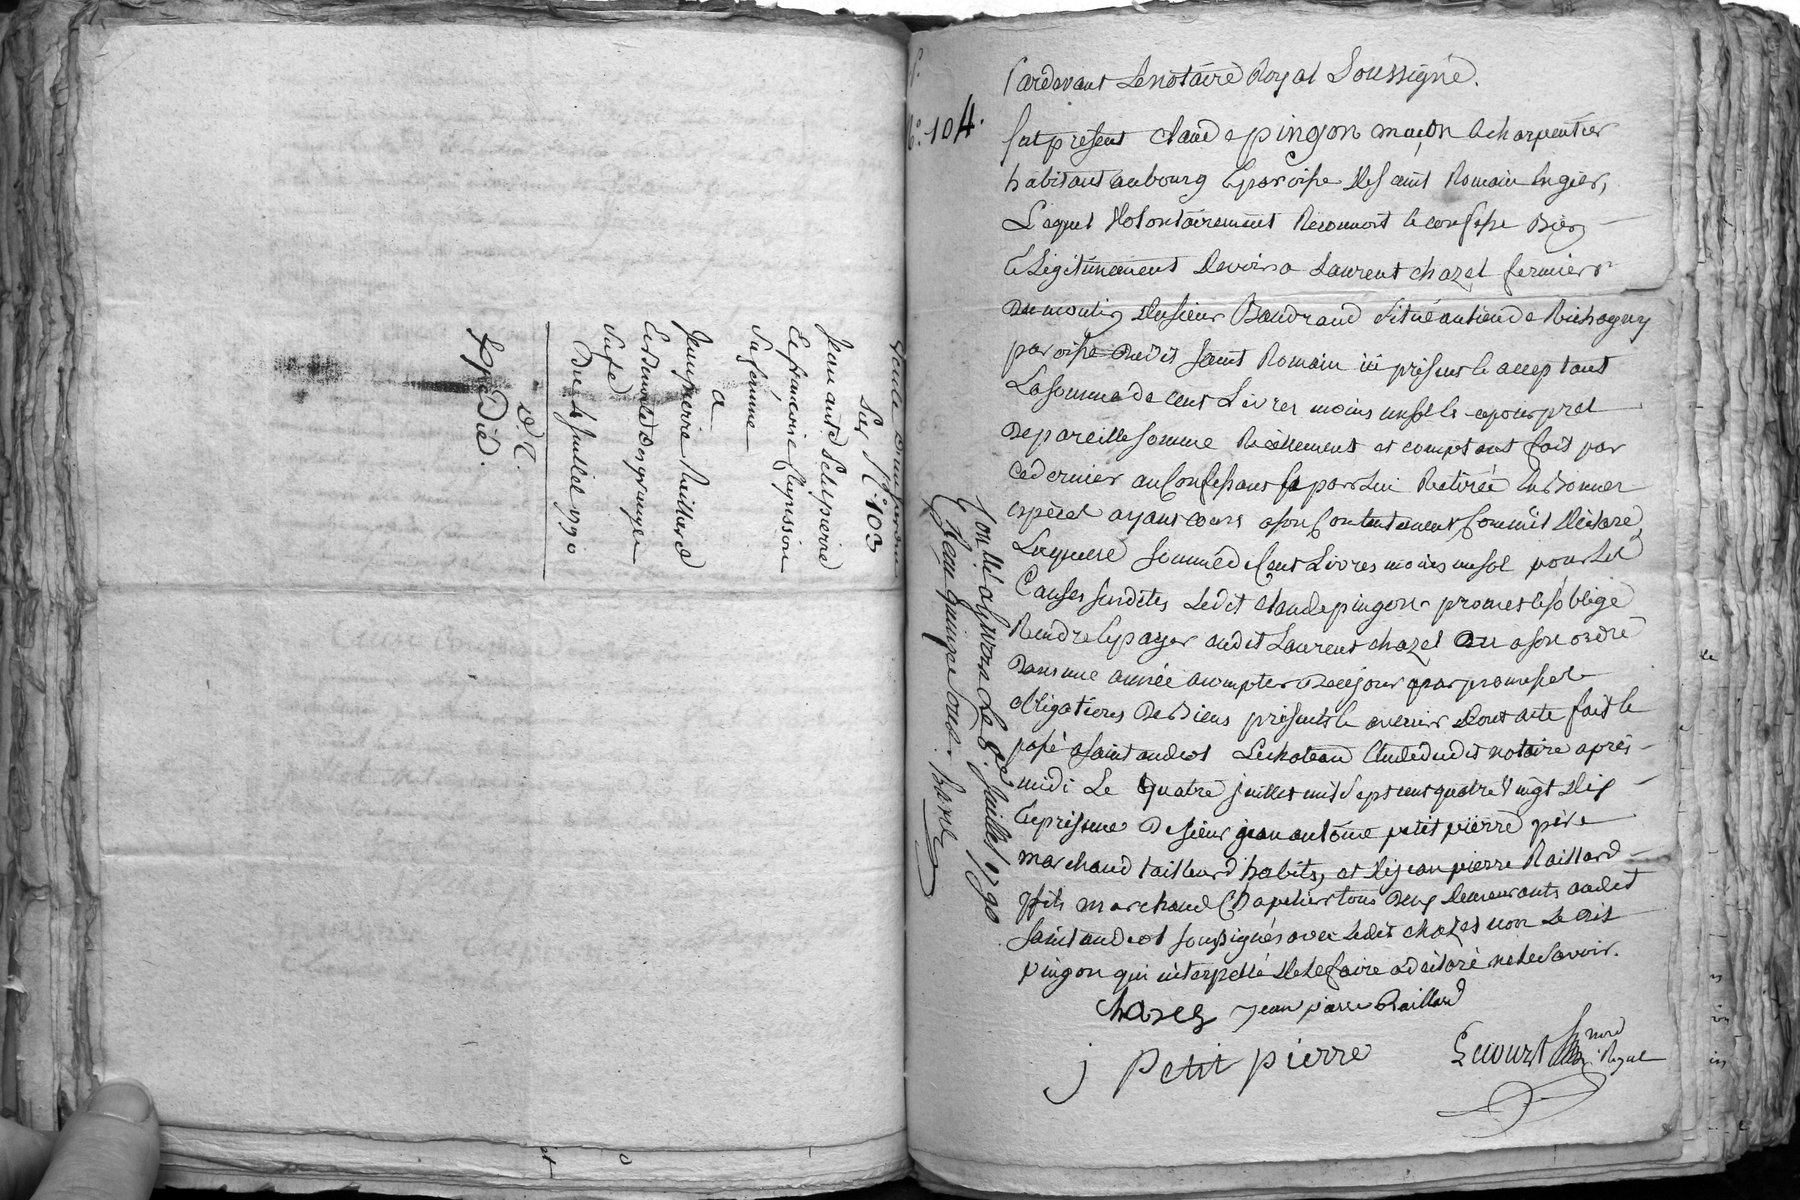 Vente D'un perron
sur No. 103
Jean ante petitpierre
et francoise
sa femme
a
Jean pierre Raillard
Et Benoite Desgranges
Du 4 Juillet 1790
D.C.
Expédié.
No. 104.
Pardevant Le notaire Royal Soussigné.
fut présent claude pingon maçon & charpentier
habitant au bourg & paroisse de saint Romain en gier,
Lequel Volontairement Reconnoit & confesse Bien
& Légitimement devoir a Laurent chazel fermier
Du moulin du sieur Baudrand situé au lieu de
paroisse dudit saint Romain ici présent & acceptant
La somme de cent Livres moins un sol & ce pour pret
De pareille somme Réellement et comptant fait par
ce dernier au Confessant & par lui Retirée en Bonnes
especes ayant cours a son Contentement comme il déclare,
Laquelle somme de Cent Livres moins un sol pour les
Causes susdites Ledit claude pingon promet & s'oblige
Rendre & payer audit Laurent chazel ou a son ordre
Dans une année a compter De ce jour par promesse &
obligations De Biens présents & avenir Dont acte fait &
passé a saint andeol Le chateau Etude dudit notaire après
midi Le quatre juillet mil sept cent quatre vingt dix
En présence De sieur jean antoine petit pierre père
marchand tailleur d'habits, et de jean pierre Raillard
fils marchand Chapelier tous deux demeurants audit
saint andeol soussignés avec Ledit chazel non Ledit
pingon qui interpellé de Le faire a declaré ne le savoir.
chazel jean pierre Raillard
j petit pierre
Lecourt
Royal
Con.lé a givors Le 8 Juillet 1790
Reçu quinze sous.